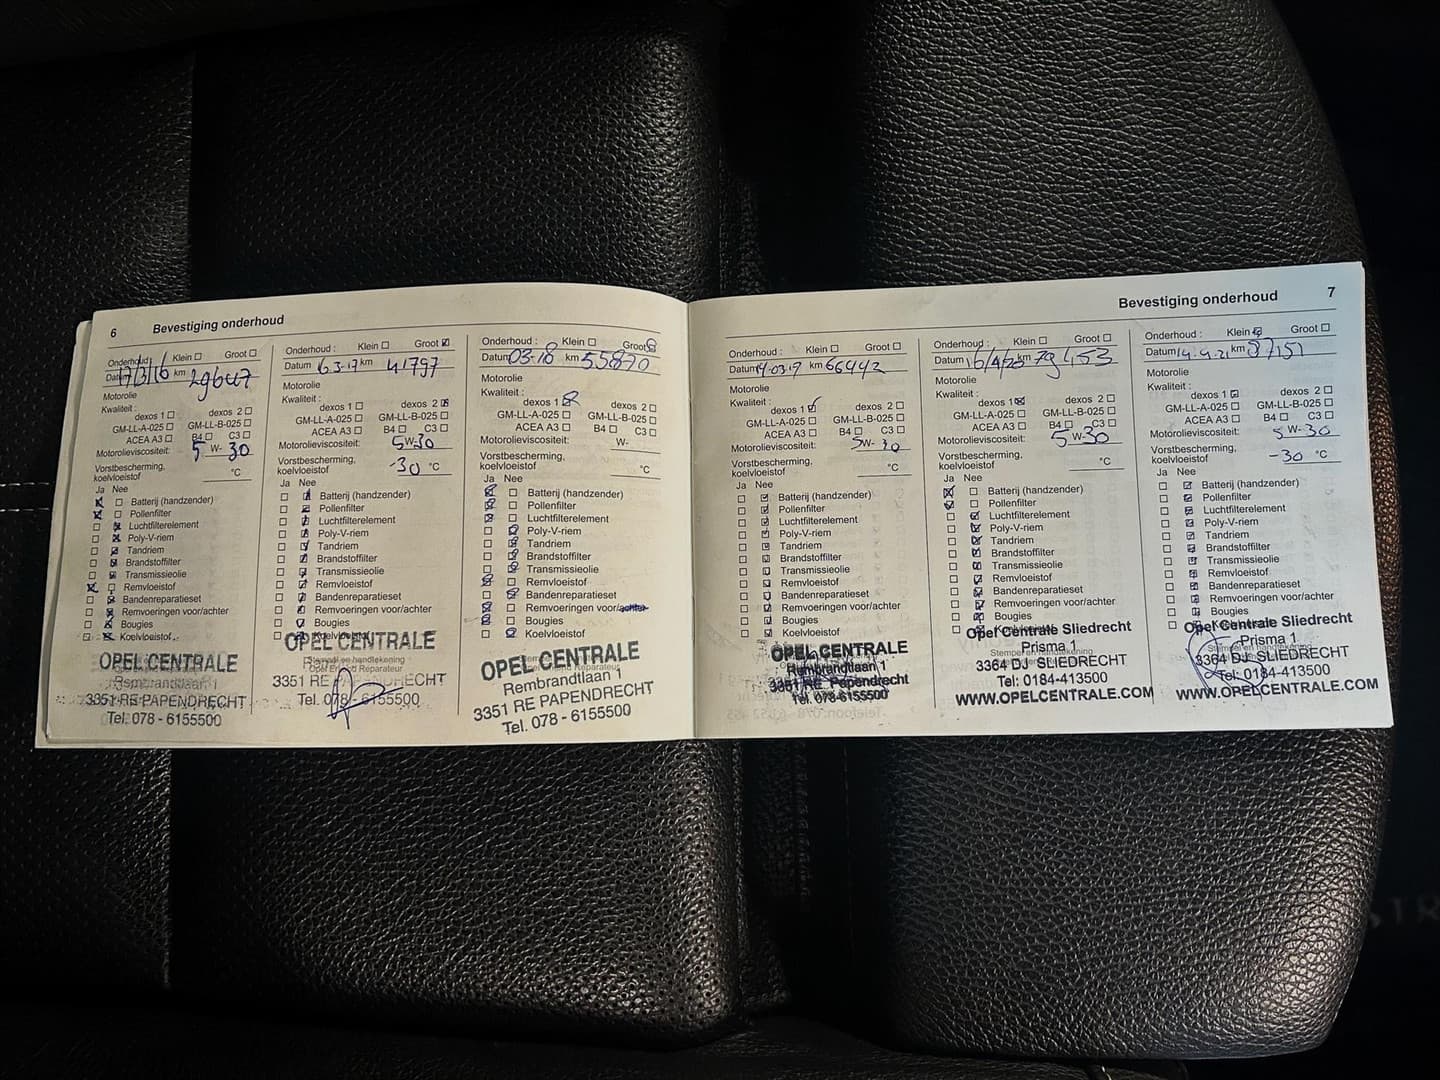 6 Bevestiging onderhoud
Onderhoud: Klein Groot
Datum 17/3/16 km 29647
Motorolie
Kwaliteit :
dexos 1 dexos 2
GM-LL-A-025 GM-LL-B-025
ACEA A3 B4 C3
Motorolieviscositeit: 5 W- 30
Vorstbescherming,
koelvloeistof °C
Ja Nee
Batterij (handzender)
Pollenfilter
Luchtfilterelement
Poly-V-riem
Tandriem
Brandstoffilter
Transmissieolie
Remvloeistof
Bandenreparatieset
Remvoeringen voor/achter
Bougies
Koelvloeistof
OPEL CENTRALE
Rembrandtlaan 1
3351 RE PAPENDRECHT
Tel. 078 - 6155500
Onderhoud : Klein Groot
Datum 6-3-17 km 41797
Motorolie
Kwaliteit :
dexos 1 dexos 2
GM-LL-A-025 GM-LL-B-025
ACEA A3 B4 C3
Motorolieviscositeit: 5 W- 30
Vorstbescherming,
koelvloeistof -30 °C
Ja Nee
Batterij (handzender)
Pollenfilter
Luchtfilterelement
Poly-V-riem
Tandriem
Brandstoffilter
Transmissieolie
Remvloeistof
Bandenreparatieset
Remvoeringen voor/achter
Bougies
Koelvloeistof
OPEL CENTRALE
3351 RE PAPENDRECHT
Tel. 078 - 6155500
Onderhoud : Klein Groot
Datum 03-18 km 55870
Motorolie
Kwaliteit :
dexos 1 dexos 2
GM-LL-A-025 GM-LL-B-025
ACEA A3 B4 C3
Motorolieviscositeit: W-
Vorstbescherming,
koelvloeistof °C
Ja Nee
Batterij (handzender)
Pollenfilter
Luchtfilterelement
Poly-V-riem
Tandriem
Brandstoffilter
Transmissieolie
Remvloeistof
Bandenreparatieset
Remvoeringen voor/achter
Bougies
Koelvloeistof
OPEL CENTRALE
Rembrandtlaan 1
3351 RE PAPENDRECHT
Tel. 078 - 6155500
Bevestiging onderhoud 7
Onderhoud : Klein Groot
Datum 14-03-19 km 66442
Motorolie
Kwaliteit :
dexos 1 dexos 2
GM-LL-A-025 GM-LL-B-025
ACEA A3 B4 C3
Motorolieviscositeit: 5 W- 30
Vorstbescherming,
koelvloeistof °C
Ja Nee
Batterij (handzender)
Pollenfilter
Luchtfilterelement
Poly-V-riem
Tandriem
Brandstoffilter
Transmissieolie
Remvloeistof
Bandenreparatieset
Remvoeringen voor/achter
Bougies
Koelvloeistof
OPEL CENTRALE
Rembrandtlaan 1
3351 RE Papendrecht
Tel. 078-6155500
Onderhoud : Klein Groot
Datum km 79453
Motorolie
Kwaliteit :
dexos 1 dexos 2
GM-LL-A-025 GM-LL-B-025
ACEA A3 B4 C3
Motorolieviscositeit: 5 W-30
Vorstbescherming,
koelvloeistof °C
Ja Nee
Batterij (handzender)
Pollenfilter
Luchtfilterelement
Poly-V-riem
Tandriem
Brandstoffilter
Transmissieolie
Remvloeistof
Bandenreparatieset
Remvoeringen voor/achter
Bougies
Opel Centrale Sliedrecht
Prisma 1
3364 DJ SLIEDRECHT
Tel: 0184-413500
WWW.OPELCENTRALE.COM
Onderhoud : Klein Groot
Datum 14-4-21 km 87151
Motorolie
Kwaliteit :
dexos 1 dexos 2
GM-LL-A-025 GM-LL-B-025
ACEA A3 B4 C3
Motorolieviscositeit: 5 W-30
Vorstbescherming,
koelvloeistof -30 °C
Ja Nee
Batterij (handzender)
Pollenfilter
Luchtfilterelement
Poly-V-riem
Tandriem
Brandstoffilter
Transmissieolie
Remvloeistof
Bandenreparatieset
Remvoeringen voor/achter
Bougies
Opel Centrale Sliedrecht
Prisma 1
3364 DJ SLIEDRECHT
Tel: 0184-413500
WWW.OPELCENTRALE.COM